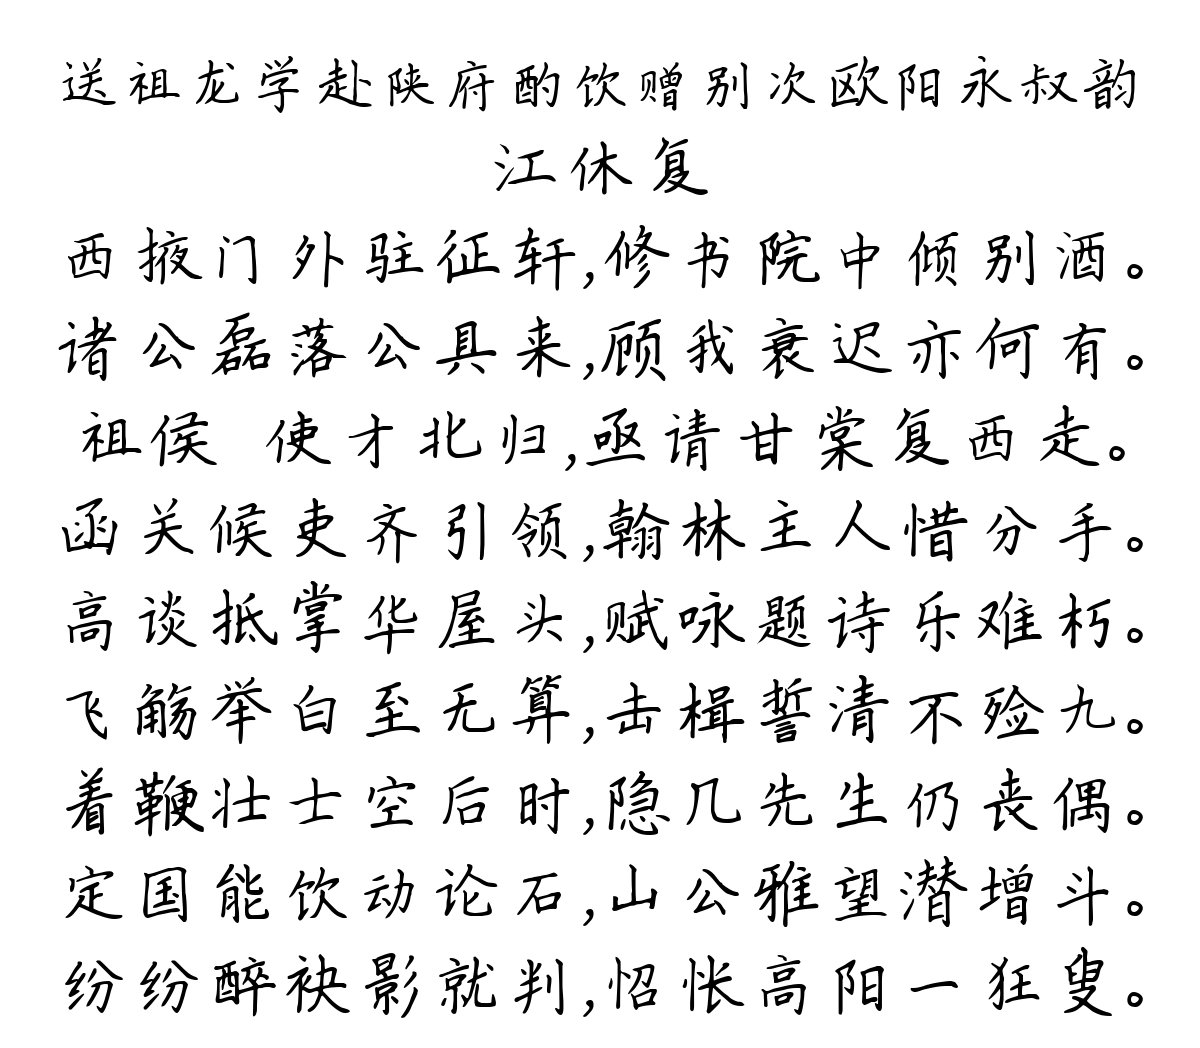 送祖龙学赴陕府酌饮赠别次欧阳永叔韵
江休复
西掖门外驻征轩,修书院中倾别酒。
诸公磊落公具来,顾我衰迟亦何有。
祖侯 使才北归,亟请甘棠复西走。
函关候吏齐引领,翰林主人惜分手。
高谈抵掌华屋头,赋咏题诗乐难朽。
飞觞举白至无算,击楫誓清不殓九。
着鞭壮士空后时,隐几先生仍丧偶。
定国能饮动论石,山公雅望潜增斗。
纷纷醉袂影就判,怊怅高阳一狂叟。